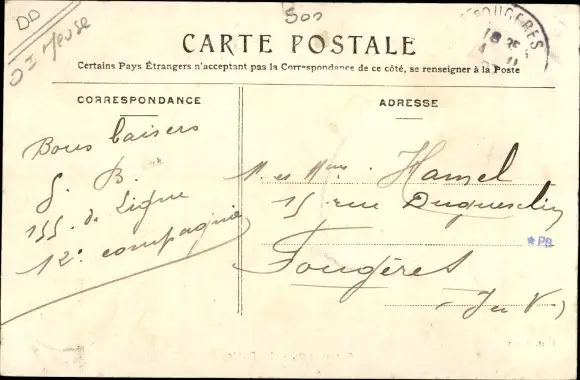 DD
500
FOUGERES
CARTE POSTALE
Certains Pays Étrangers n'acceptant pas la Correspondance de ce côté, se renseigner à la Poste
CORRESPONDANCE
Bons baisers
155. de Ligne
12e compagnie
ADRESSE
M. et Mme Hamel
15 rue Duguesclin
*PB
Fougères
(I et V)